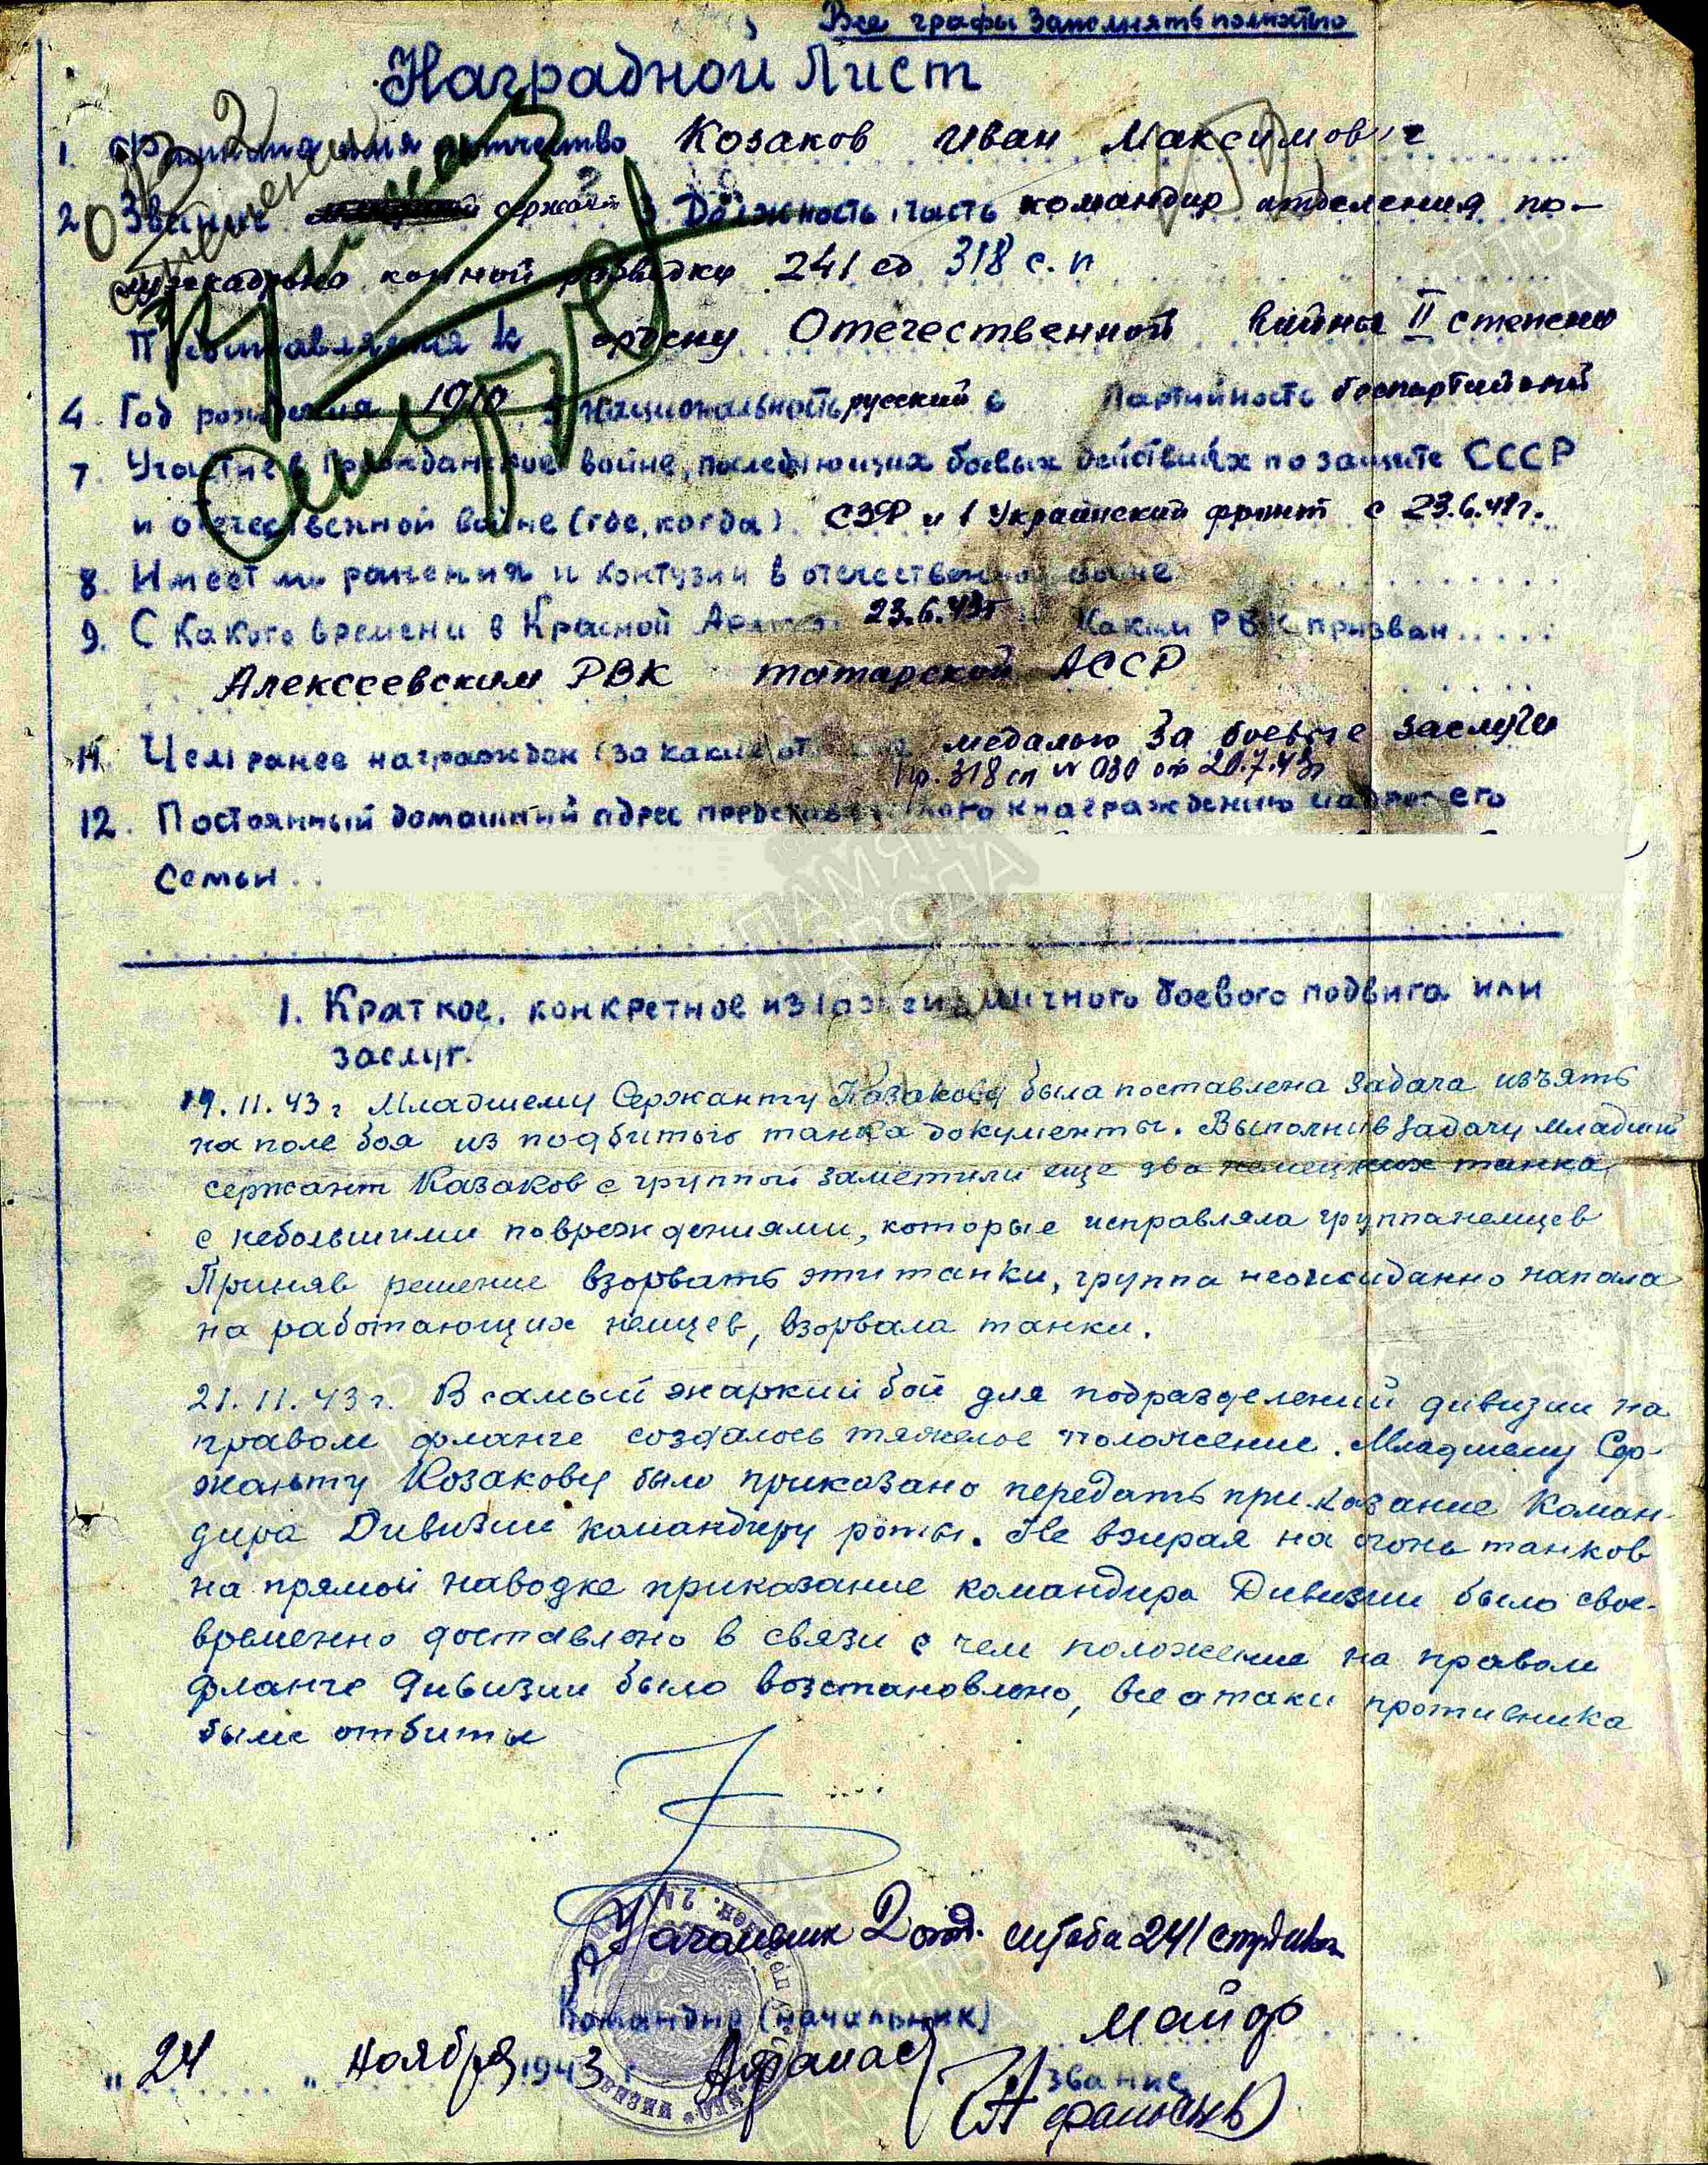 Все графы заполнять полностью
Наградной Лист
1. Фамилия имя отчество Козаков Иван Максимович
2 Звание сержант 3. Должность, часть командир отделения по-
луэскадрона конной разведки 241 сд 318 с.п
Представляется к ордену Отечественной войны II степени
4. Год рождения 1910 5 Национальность русский 6 Партийность беспартийный
7. Участие в Гражданской войне, последующих боевых действиях по защите СССР
и отечественной войне (где, когда) СЗФ и 1 Украинский фронт с 23.6.41г.
8. Имеет ли ранения и контузии в отечественной войне
9. С какого времени в Красной Армии 23.6.41г Каким РВК призван
Алексеевским РВК татарской АССР
11. Чем ранее награжден (за какие от медалью За боевые заслуги
Пр. 318 сп № 030 от 20.7.43г
12. Постоянный домашний адрес представляемого к награждению и адрес его
Семьи
1. Краткое, конкретное изложение личного боевого подвига или
заслуг.
19.11.43г Младшему Сержанту Казакову была поставлена задача изъять
на поле боя из подбитого танка документы. Выполнив задачу младший
сержант Казаков с группой заметили еще два немецких танка
с небольшими повреждениями, которые исправляла группа немцев
Приняв решение взорвать эти танки, группа неожиданно напала
на работающих немцев, взорвала танки.
21.11.43г. В самый жаркий бой для подразделений дивизии на
правом фланге создалось тяжелое положение. Младшему Сер-
жанту Козакову было приказано передать приказание Коман-
дира Дивизии командиру роты. Не взирая на огонь танков
на прямой наводке приказание командира Дивизии было свое-
временно доставлено в связи с чем положение на правом
фланге дивизии было возстановлено, все атаки противника
были отбиты
Начальник 2 отд. штаба 241 стрдивиз
Командир (начальник) майор
звание
"24" ноября 1943 г. Афанас
(Афанасьев)
ПАМЯТЬ
НАРОДА